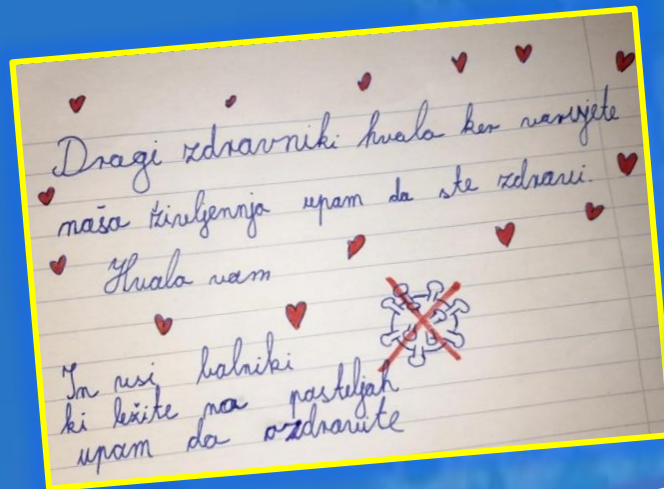 Dragi zdravniki hvala ker varujete
naša življennja upam da ste zdravi.
Hvala vam
In vsi balniki
ki ležite na posteljah
upam da ozdravite